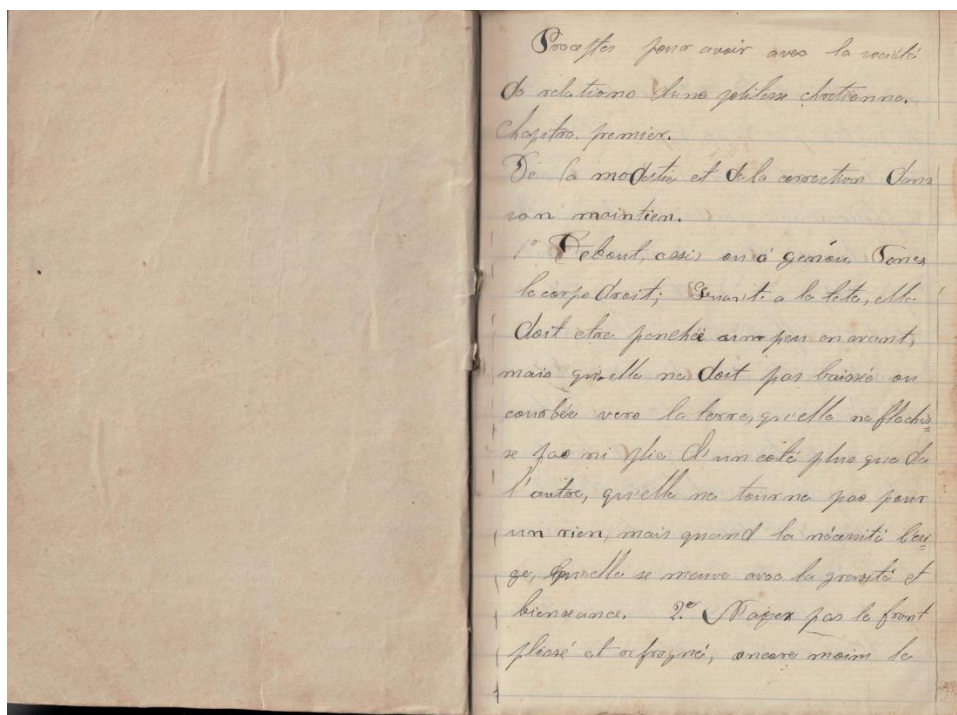 Preceptes pour avoir avec la société
de relations d'une politesse chretienne.
Chapitre. premier.
De la modestie et de la correction dans
son maintien.
1º Debout, assis ou a génou, Tenez
le corps droit; Quant a la tete, elle
doit etre penchée un peu en avant,
mais qu'elle ne doit pas baissée ou
courbée vers la terre, qu'elle ne flechis=
se pas ni plie d'un coté plus que de
l'autre, qu'elle ne tourne pas pour
un rien, mais quand la nécessité l'exi=
ge, qu'elle se meuve avec la gravité et
bienseance. 2º N'ayez pas le front
plissé et refrogné, encore moins le